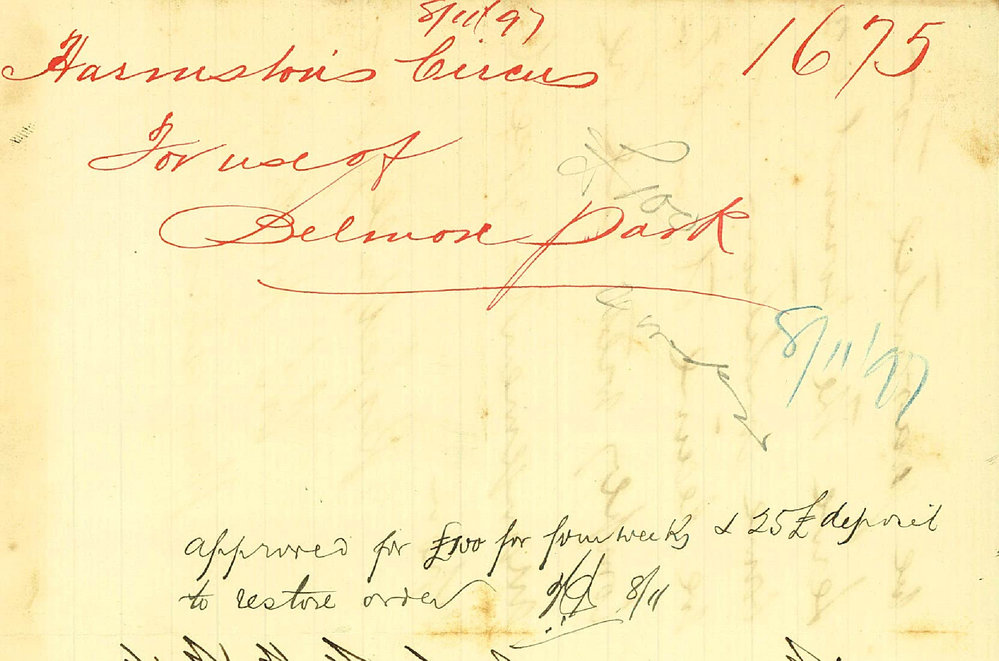 8/11/97
Harmston's Circus 1675
For use of
Belmore Park
£100
4 weeks
8/11/97
approved for £100 for four weeks & 25£ deposit
to restore order 8/11